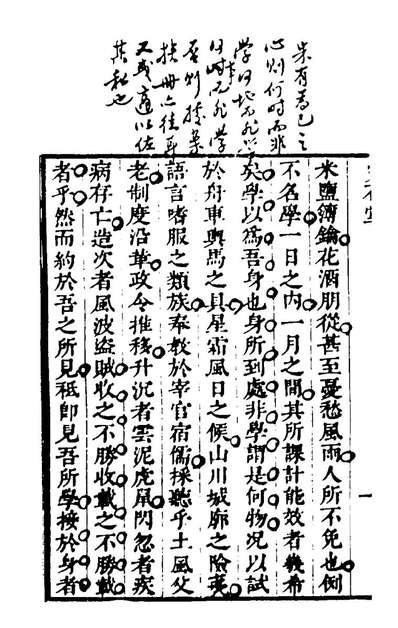 果有為己之
心則何時而非
學何地而非學
何事而非學
否則據案
挾冊亦徒耳
又或適以佐
其私也
米鹽簿鑰花酒朋從甚至憂愁風雨人所不免也倒
不名學一日之内一月之間其所課計能效者幾希
矣學以爲吾身也身所到處非學謂是何物況以試
於舟車輿馬之具星霜風日之候山川城廓之險夷
語言嗜服之類族奉教於宰官宿儒採聽乎土風父
老制度沿革政令推移升沉者雲泥虎鼠閃忽者疾
病存亡造次者風波盜賊收之不勝收載之不勝載
者乎然而約於吾之所見秪即見吾所學按於身者